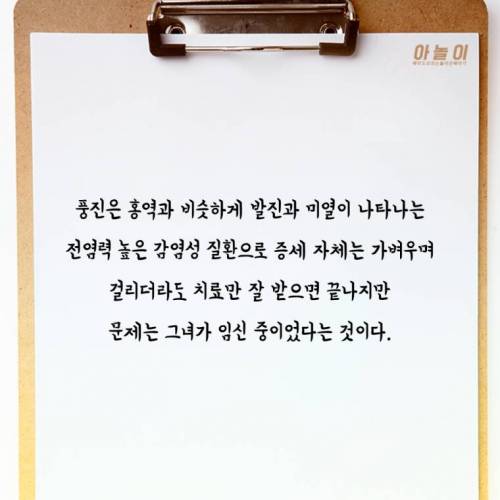 아놀이
풍진은 홍역과 비슷하게 발진과 미열이 나타나는
전염력 높은 감염성 질환으로 증세 자체는 가벼우며
걸리더라도 치료만 잘 받으면 끝나지만
문제는 그녀가 임신 중이었다는 것이다.